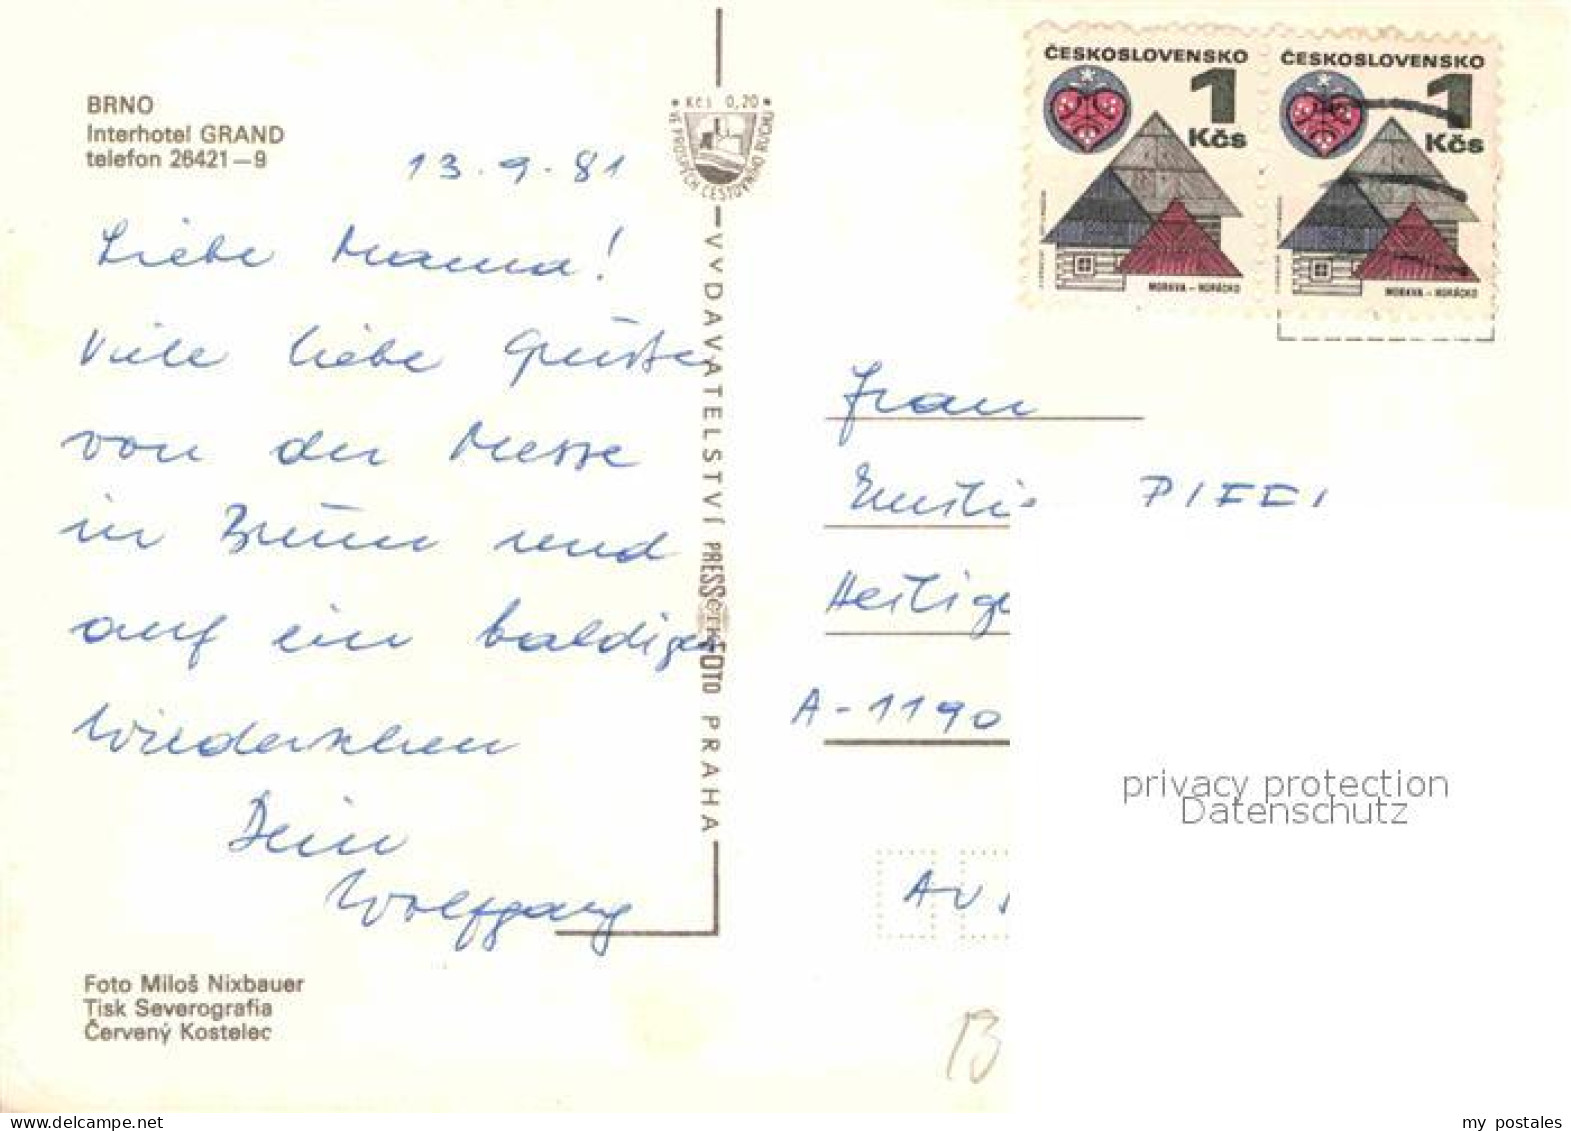 BRNO
Interhotel GRAND
telefon 26421—9
13.9.81
Liebe Mama!
Viele liebe Grüße
von der Messe
in Brünn und
auf ein baldiges
Wiedersehen
Dein
Wolfgang
Foto Miloš Nixbauer
Tisk Severografia
Červený Kostelec
Kčs 0,20
VE PROSPĚCH CESTOVNÍHO RUCHU
VYDAVATELSTVÍ PRESSFOTO PRAHA
ČESKOSLOVENSKO
1
Kčs
MORAVA – HORÁCKO
ČESKOSLOVENSKO
1
Kčs
MORAVA – HORÁCKO
Frau
A-1190
privacy protection
Datenschutz
13
my postales